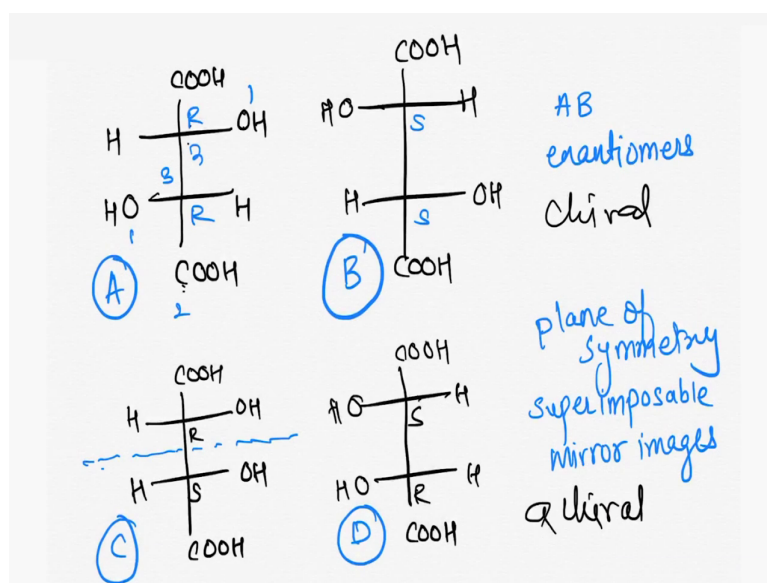 COOH
H R OH 1
3
3
HO R H
1
COOH
2
A
COOH
HO S H
H S OH
COOH
B
AB
enantiomers
Chiral
COOH
H R OH
H S OH
COOH
C
COOH
HO S H
HO R H
COOH
D
plane of
symmetry
superimposable
mirror images
achiral